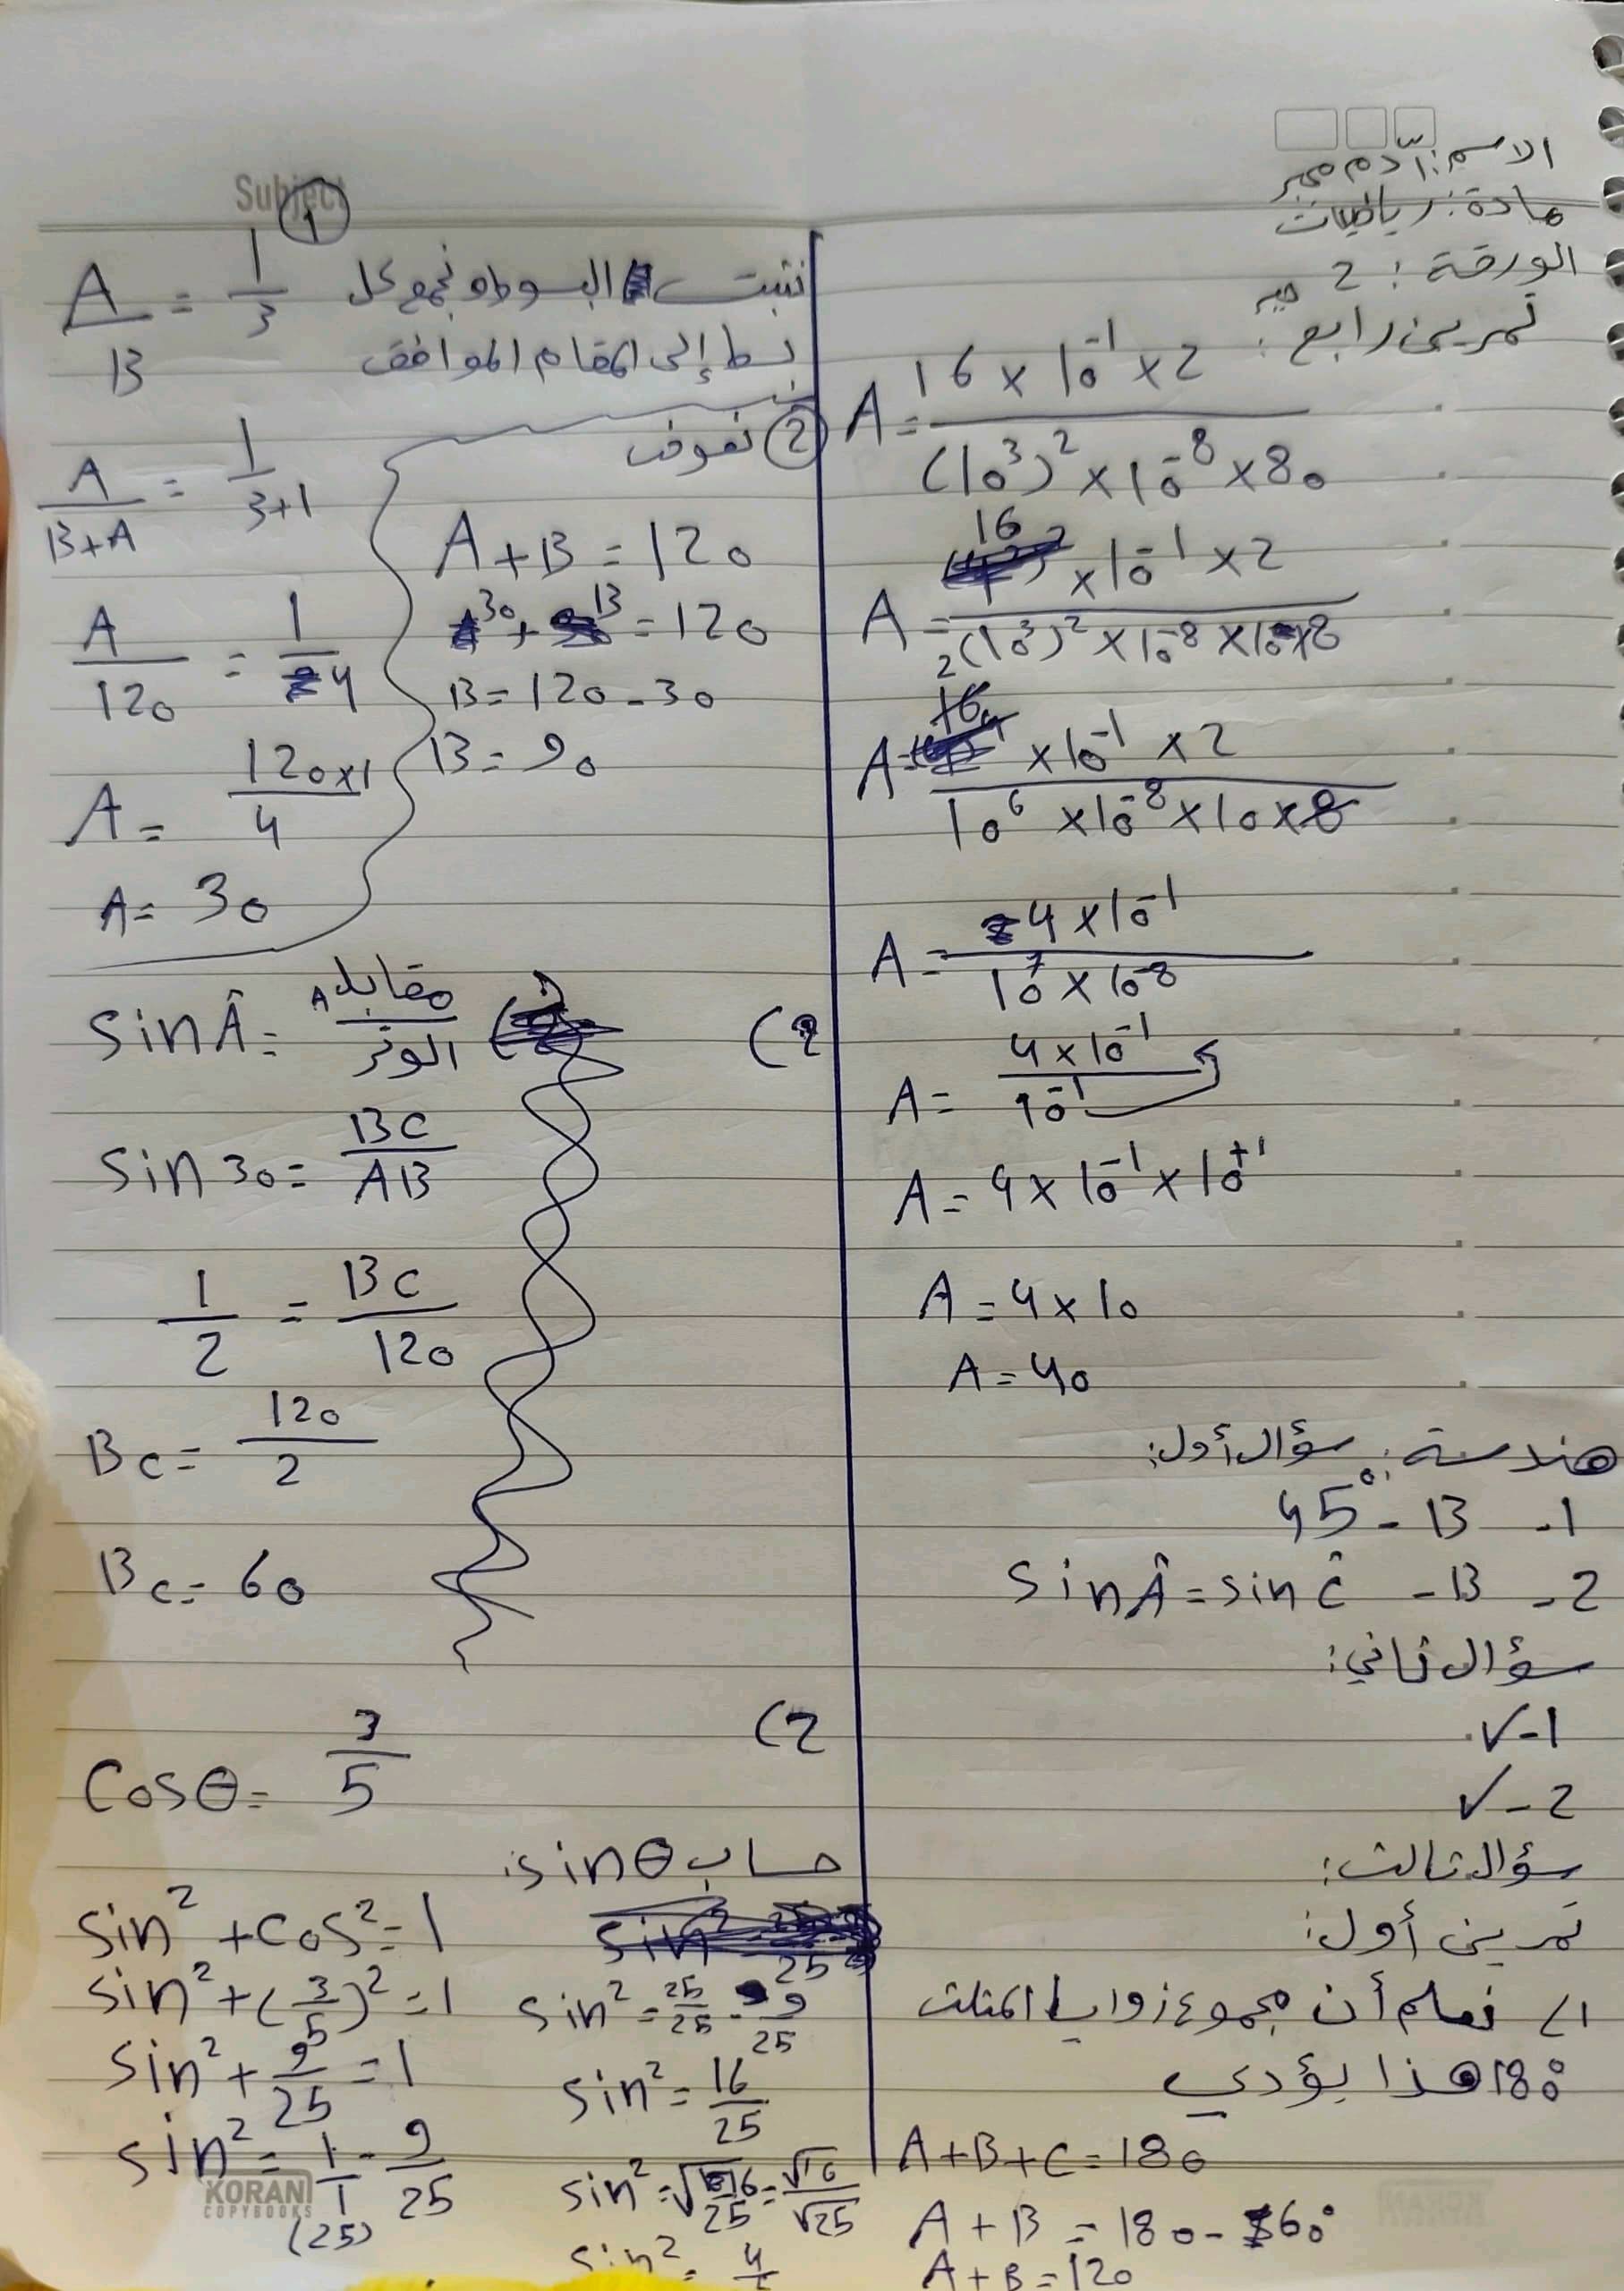 الاسم: آدم مجبر
مادة: رياضيات
الورقة: 2
تمرين رابع:
A = 16 × 10⁻¹ × 2 / (10³)² × 10⁻⁸ × 80
A = 16 × 10⁻¹ × 2 / (10³)² × 10⁻⁸ × 10 × 8
A = 16 × 10⁻¹ × 2 / 10⁶ × 10⁻⁸ × 10 × 8
A = 4 × 10⁻¹ / 10⁷ × 10⁻⁸
A = 4 × 10⁻¹ / 10⁻¹
A = 4 × 10⁻¹ × 10⁺¹
A = 4 × 10
A = 40
هندسة: سؤال أول:
1- B - 45°
2- B - sin Â = sin Ĉ
سؤال ثاني:
1- ✓
2- ✓
سؤال ثالث:
تمرين أول:
1) نعلم أن مجموع زوايا المثلث
180° هذا يؤدي
A + B + C = 180
A + B = 180 - 60°
A + B = 120
Subject
①
نثبت البسوط ونجمع كل
بسط إلى المقام الموافق
A / B = 1 / 3
A / B+A = 1 / 3+1
A / 120 = 1 / 4
A = 120×1 / 4
A = 30
② نعوض
A + B = 120
30 + B = 120
B = 120 - 30
B = 90
2)
sin Â = مقابل A / الوتر
sin 30 = BC / AB
1 / 2 = BC / 120
BC = 120 / 2
BC = 60
2)
Cos θ = 3 / 5
حساب sin θ:
sin² + cos² = 1
sin² + (3/5)² = 1
sin² + 9/25 = 1
sin² = 1/1 - 9/25
(25)
sin² = 25/25 - 9/25
sin² = 16/25
sin² = √16/25 = √16/√25
KORAN
COPYBOOKS